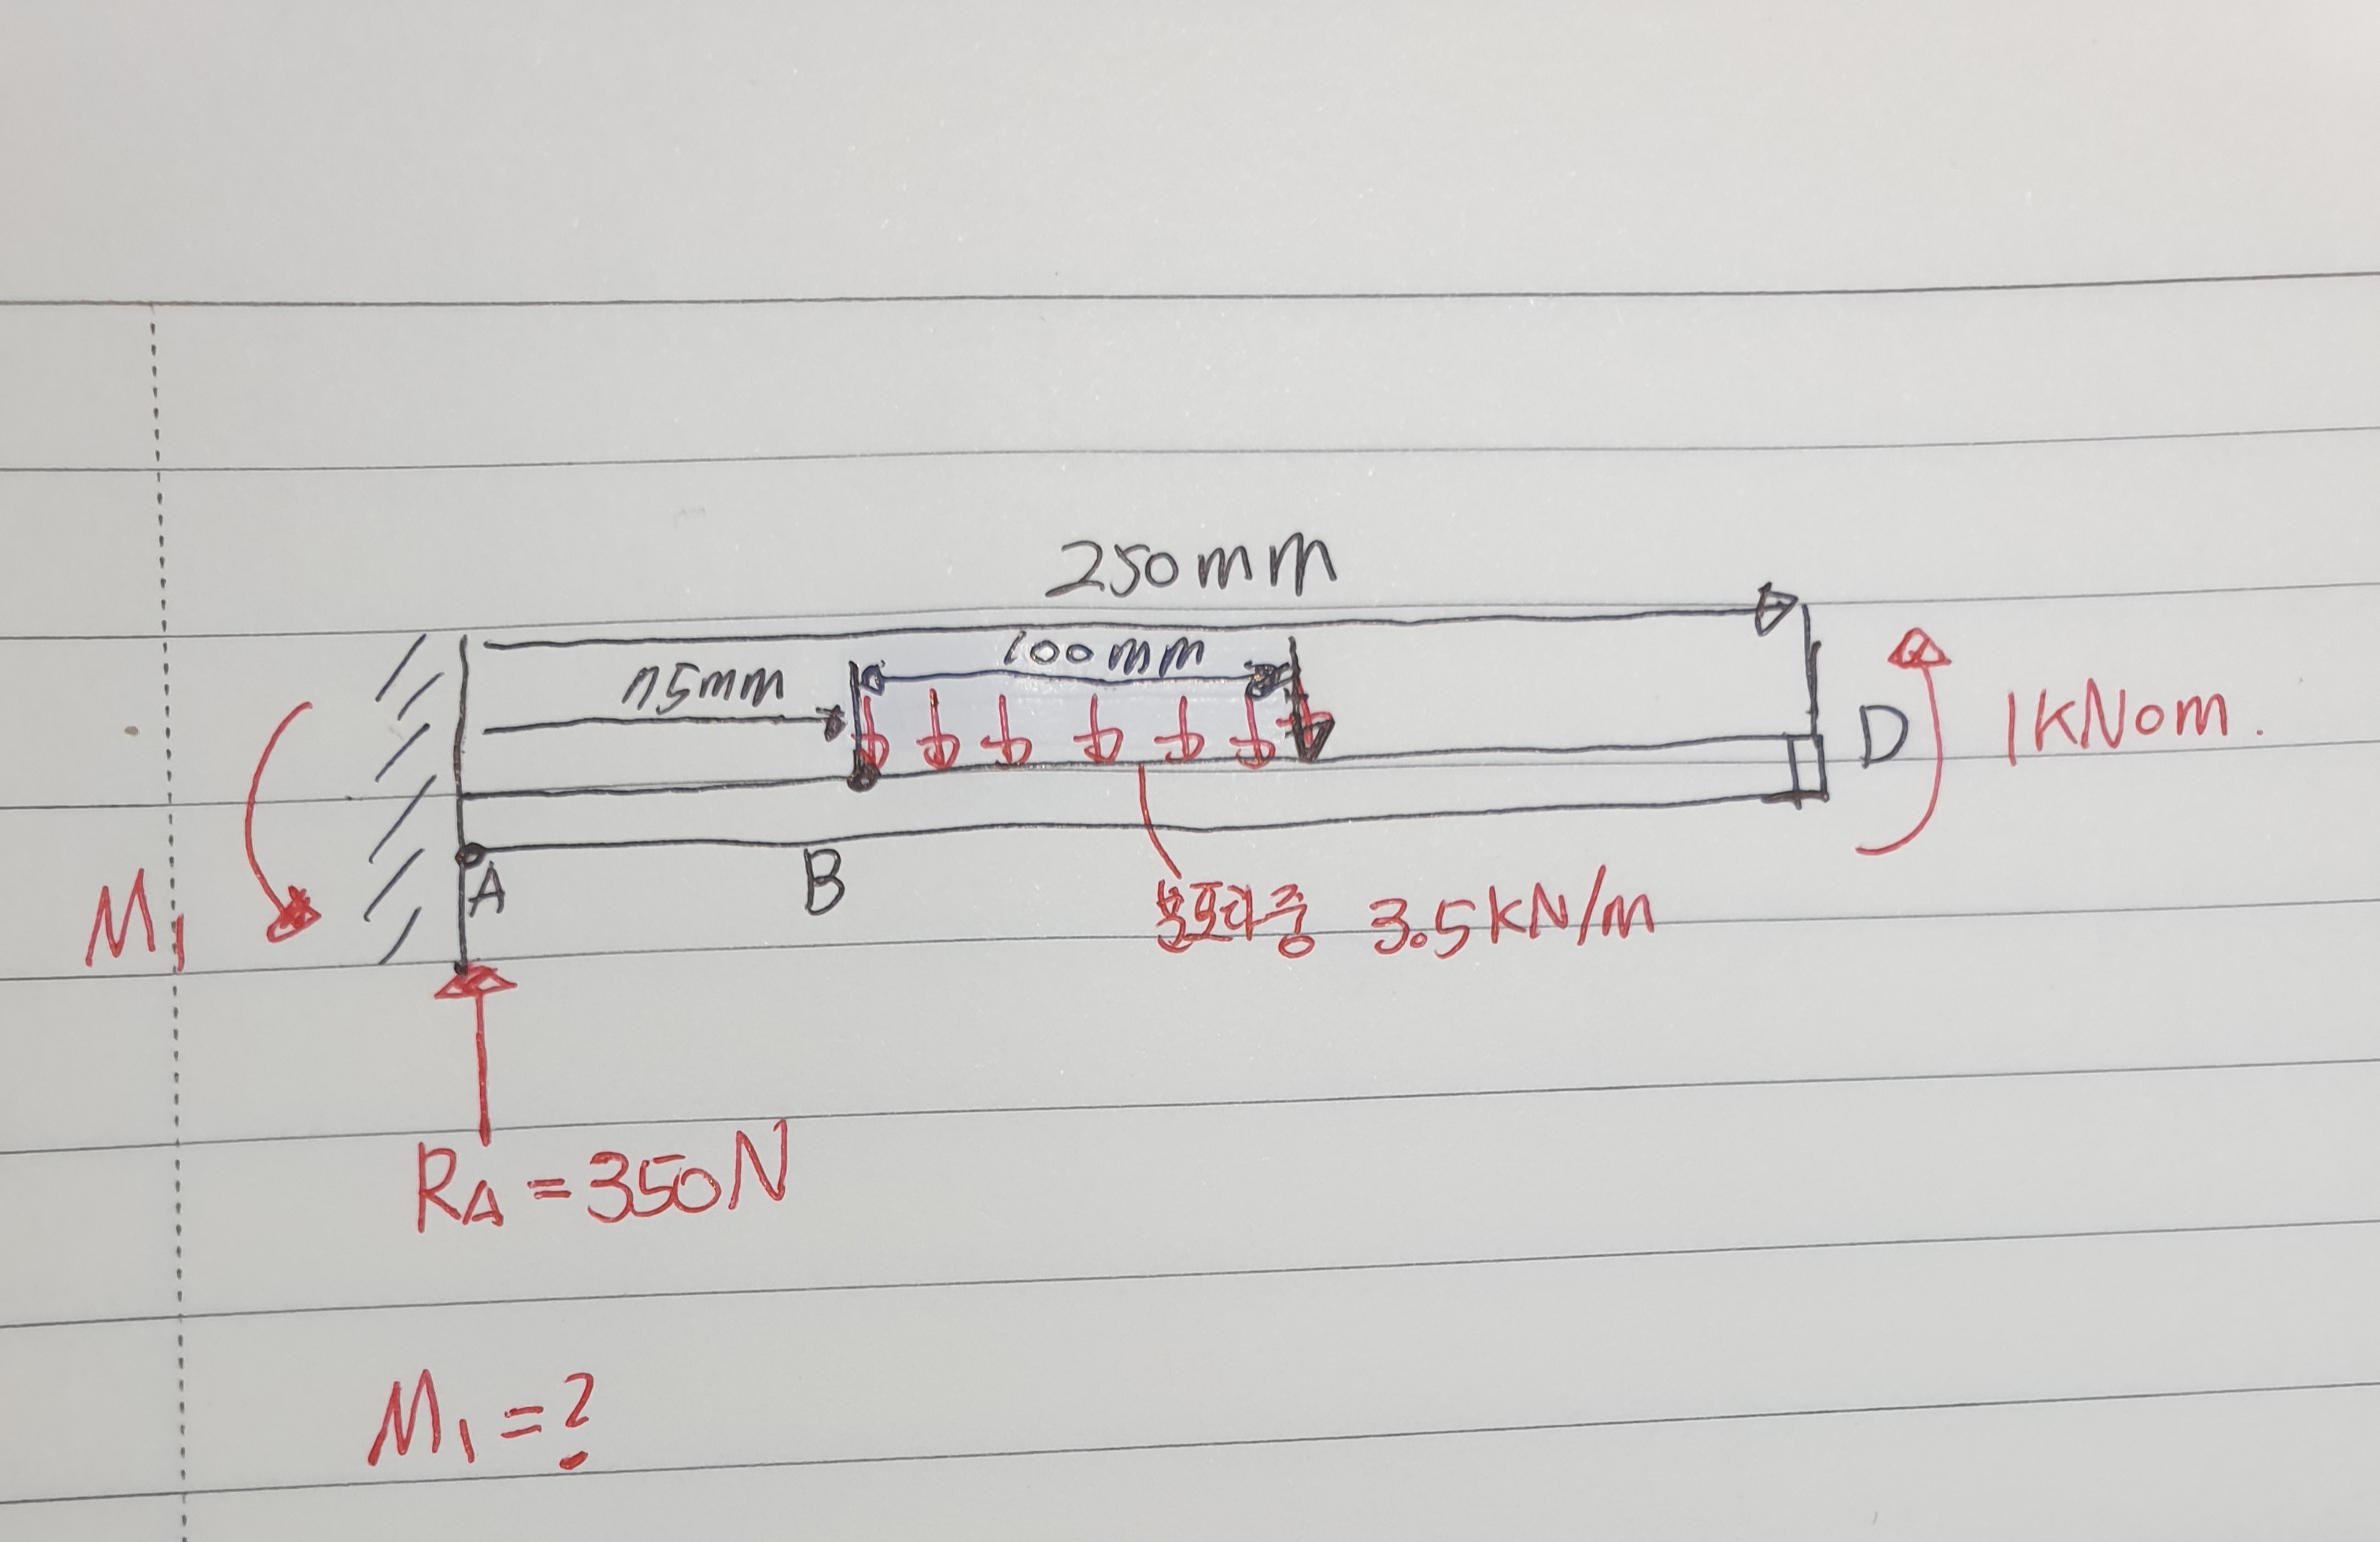 250mm
100mm
75mm
D 1KNom.
A
B
M1
분포하중 3.5KN/m
RA=350N
M1=?